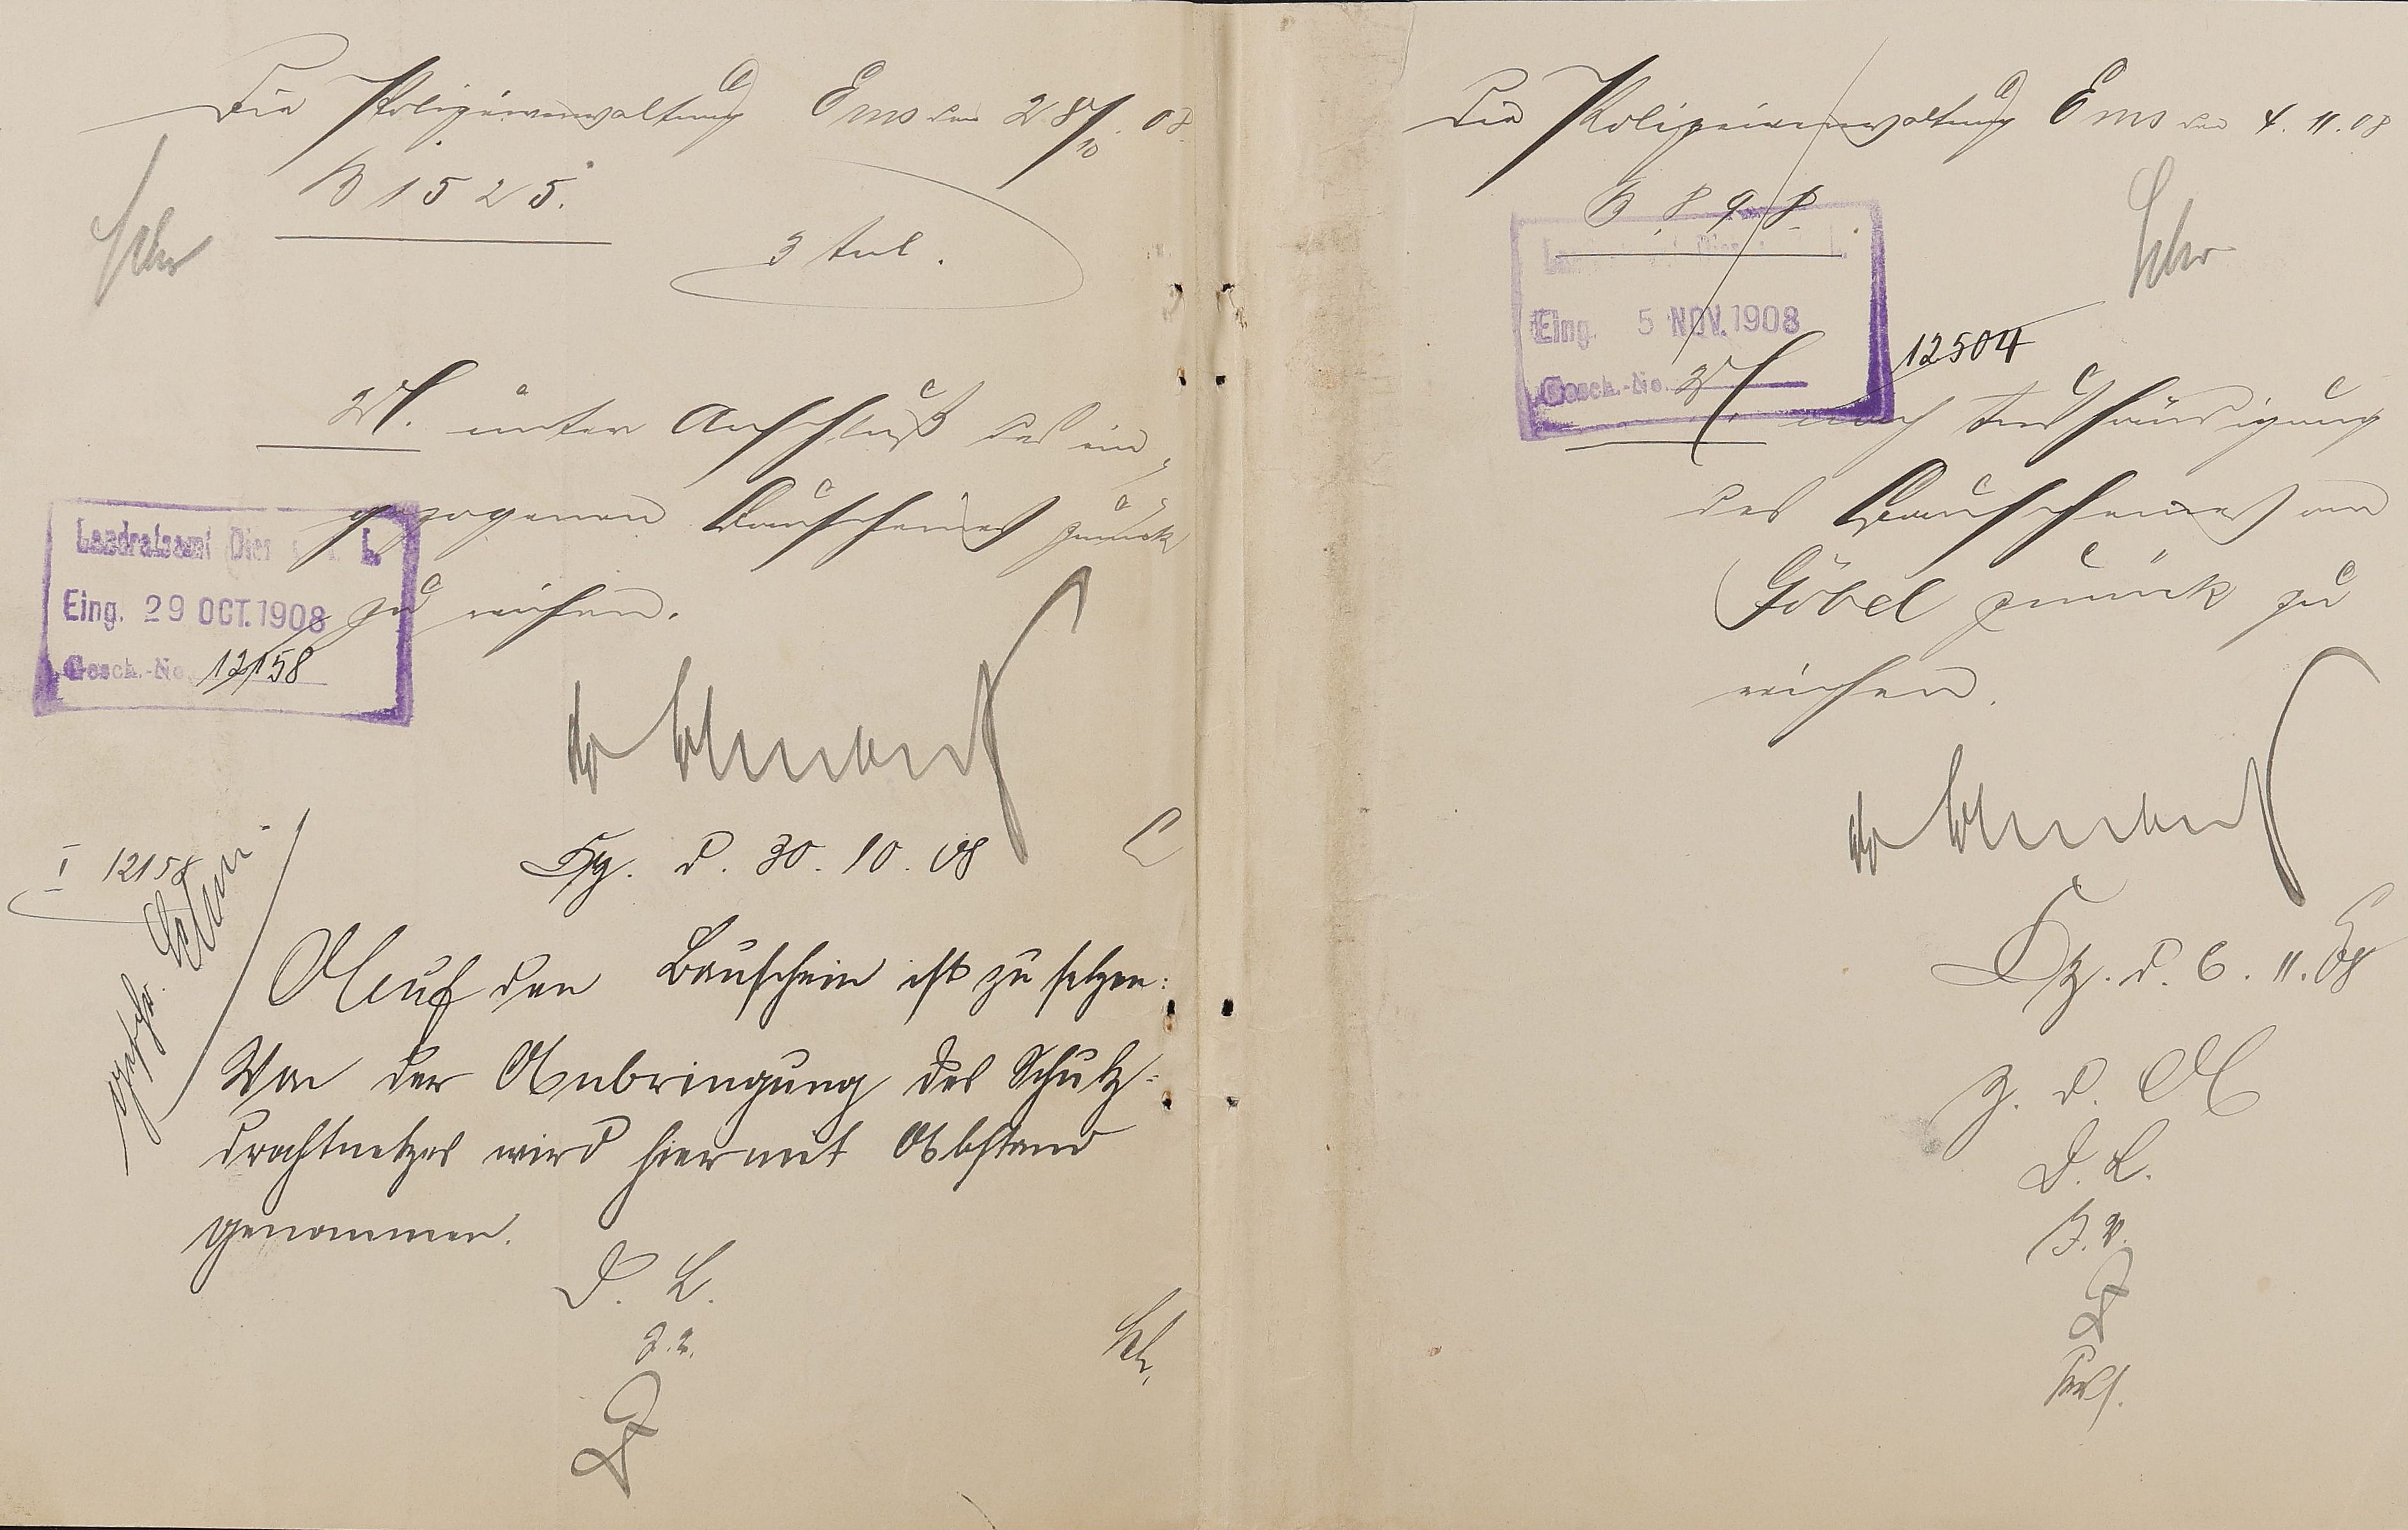 Die Polizeiverwaltung Ems den 28/10.08
B 1525.
3 Anl.
U. unter Anschluß des ein-
gezogenen Bauscheines zurück
zu reichen.
Landratsamt Diez a. L.
Eing. 29 OCT. 1908
Gesch.-No. 12158
I 12158
Dz. d. 30.10.08
Auf den Bauschein ist zu setzen:
Von der Anbringung des Schutz-
drahtnetzes wird hiermit Abstand
genommen.
D. L.
J. V.
Die Polizeiverwaltung Ems den 4.11.08
B 898.
Landratsamt Diez a. L.
Eing. 5 NOV. 1908
Gesch.-No.
12504
U. nach Aushändigung
des Bauscheines an
Göbel zurück zu
reichen.
Dz. d. 6.11.08
Z. d. A
D. L.
J. V.